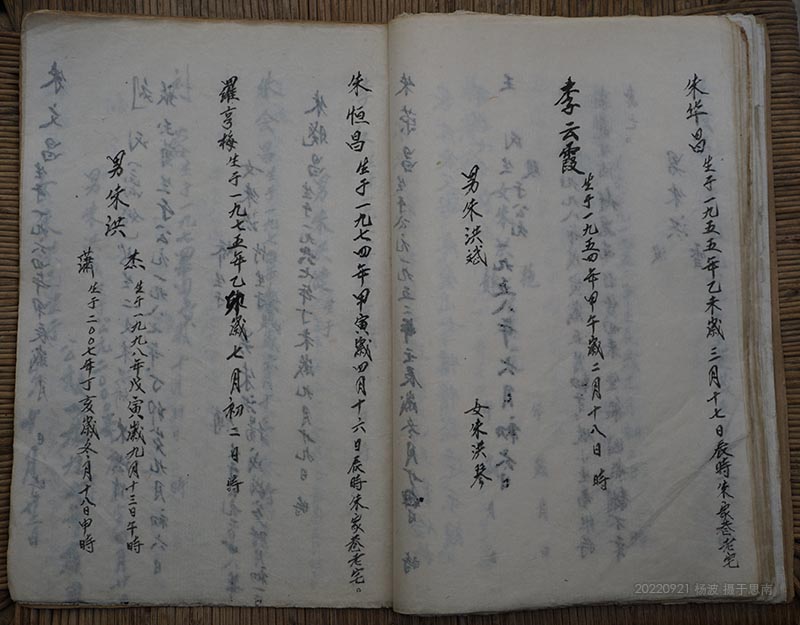 朱华昌生于一九五五年乙未歲三月十七日辰時朱家巷老宅
李云霞生于一九五四年甲午歲二月十八日 時
男朱洪斌
女朱洪琴
朱恒昌生于一九七四年甲寅歲四月十六日辰時朱家巷老宅。
羅亨梅生于一九七五年乙卯歲七月初二日 時
男朱洪
杰生于一九九八年戊寅歲九月十三日午時
蕭生于二00七年丁亥歲冬月十八日申時
20220921 杨波 摄于思南